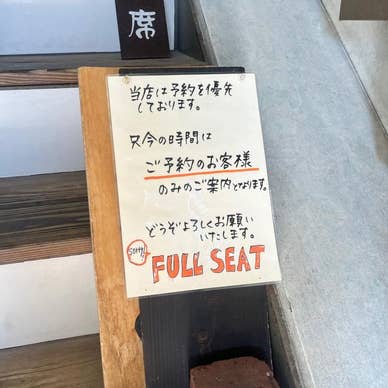 席
当店は予約を優先
しております。
只今の時間は
ご予約のお客様
のみのご案内となります。
どうぞよろしくお願い
いたします。
sorry
FULL SEAT